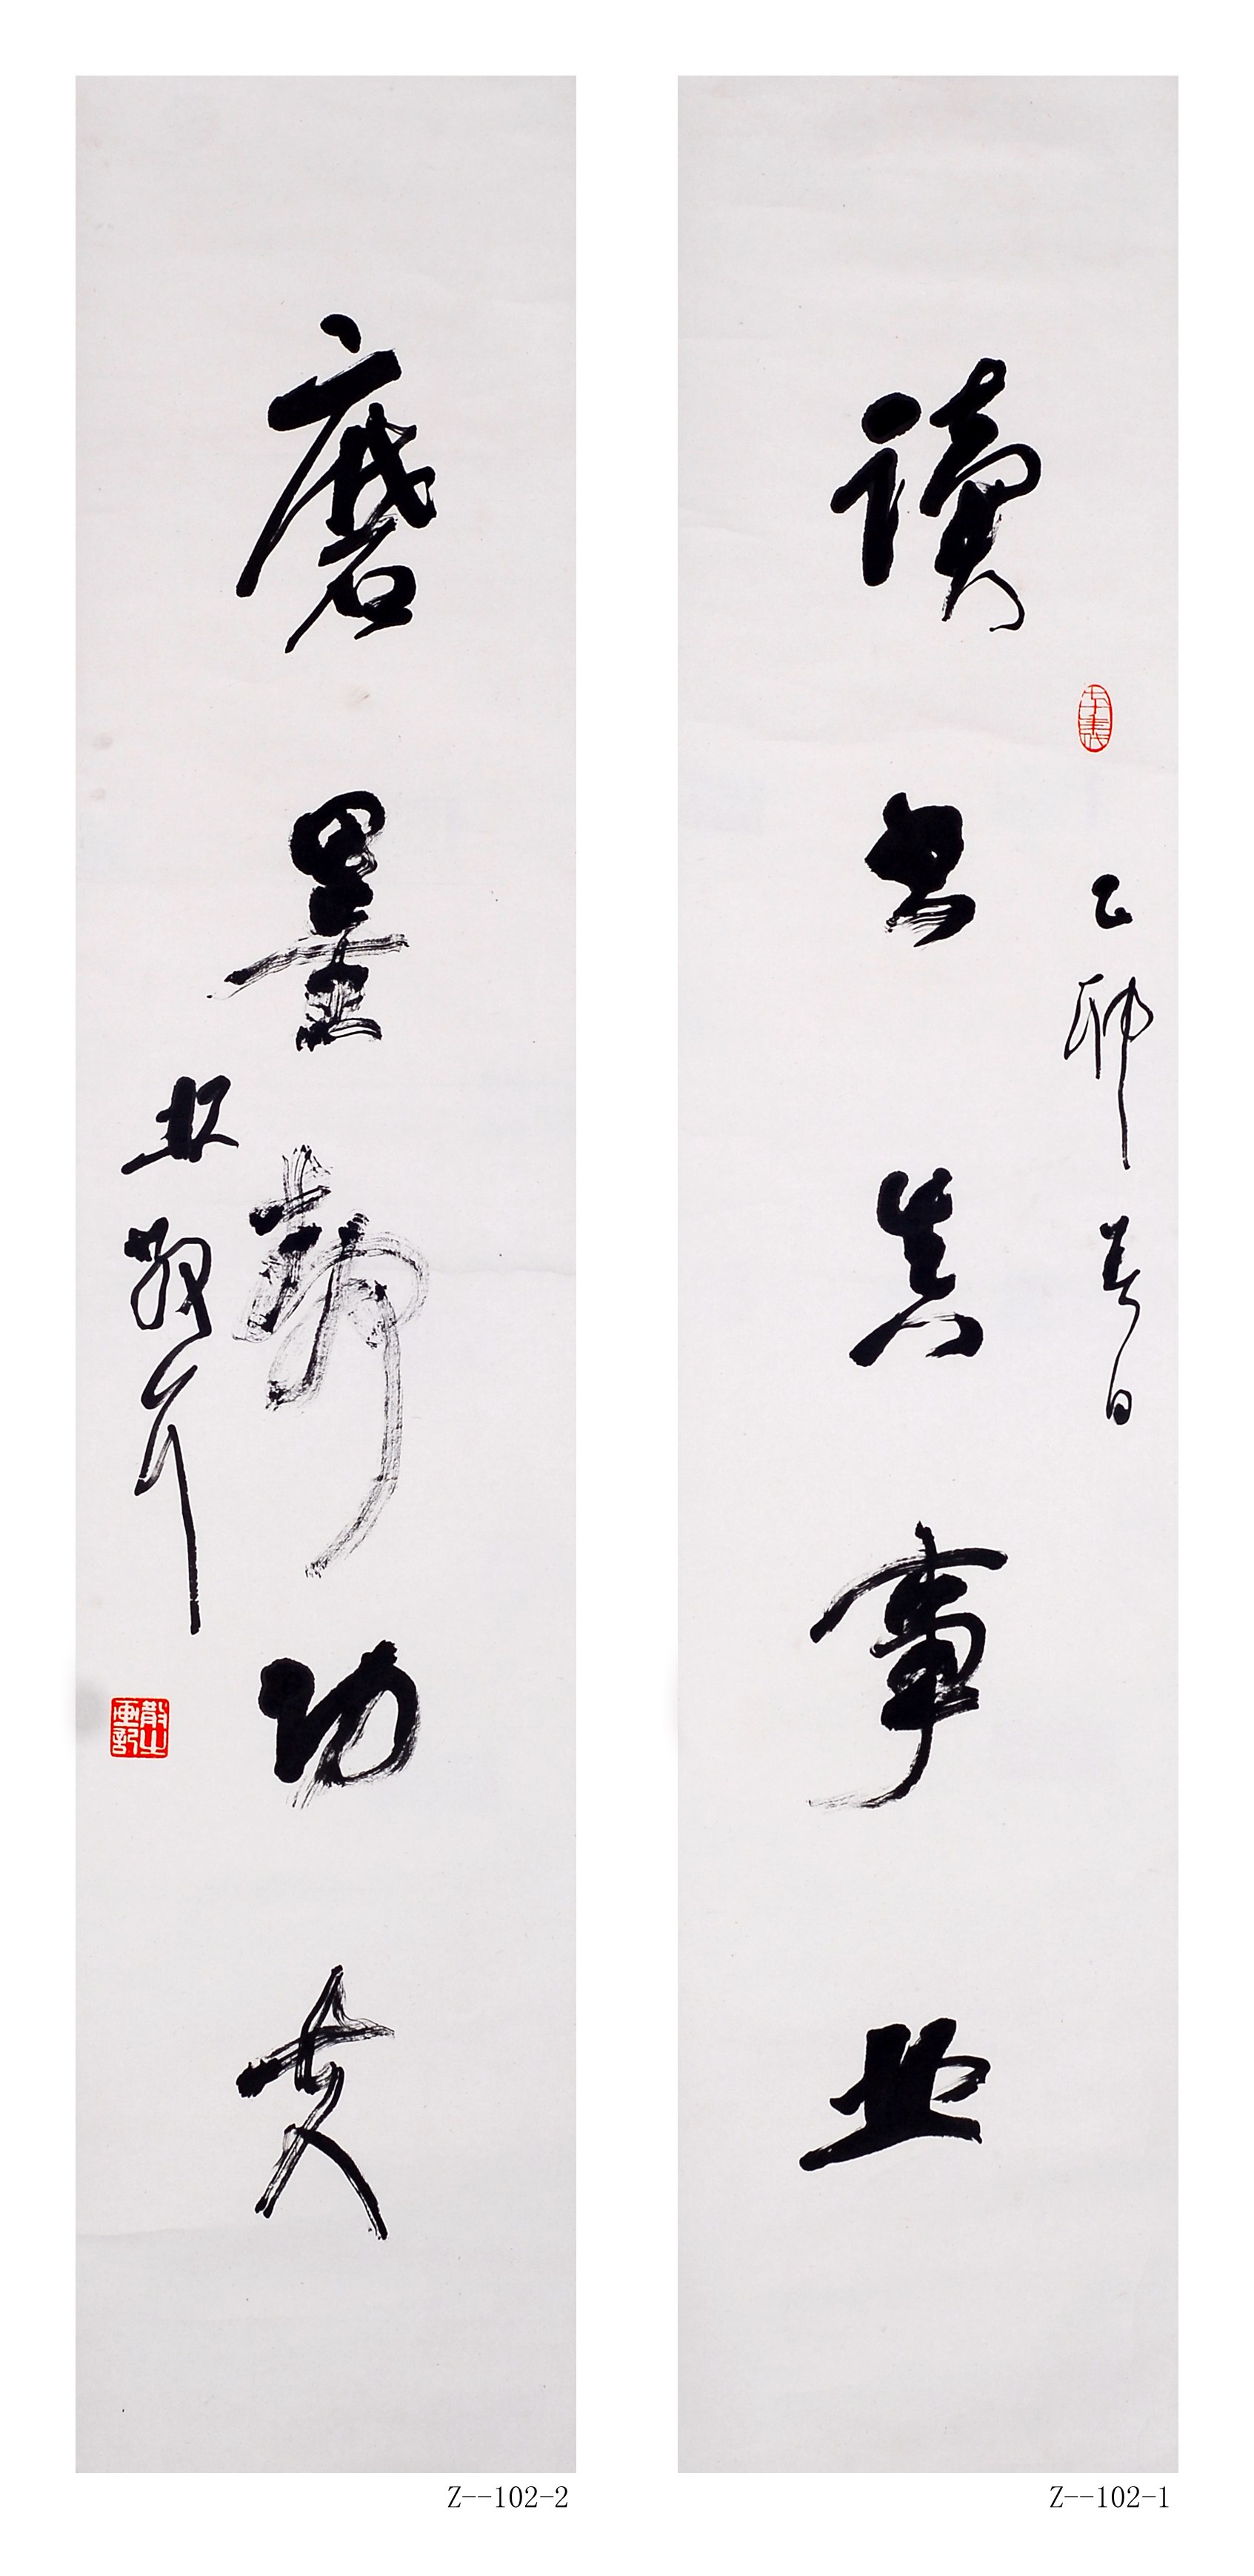 讀書真事業
乙卯春日
磨墨靜功夫
林散耳
Z--102-2
Z--102-1